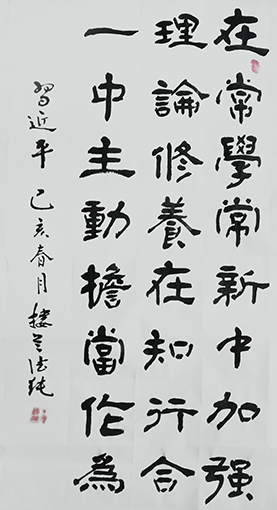 在常學常新中加强
理論修養在知行合
一中主動擔當作為
習近平 己亥春月